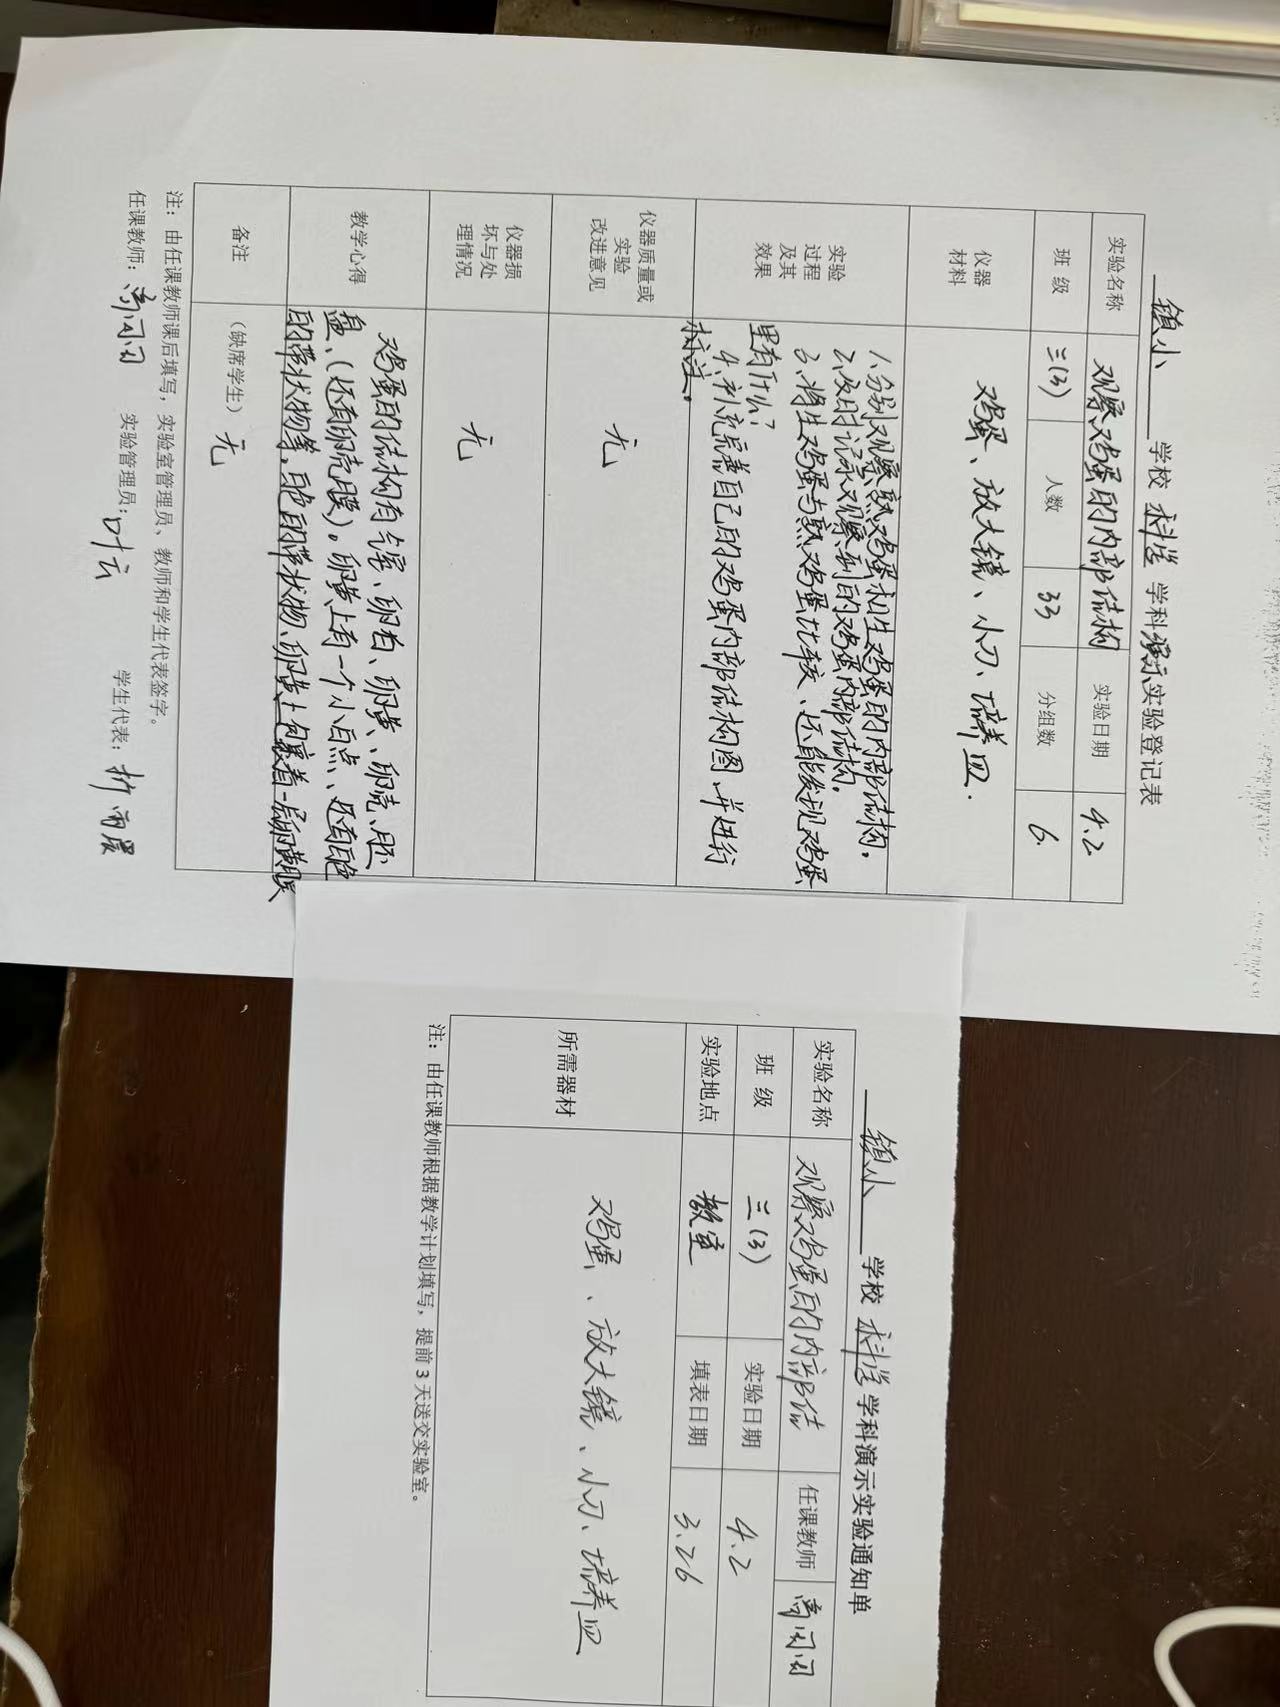 镇小 学校 科学 学科演示实验登记表
实验名称 观察鸡蛋的内部结构 实验日期 4.2
班 级 三(3) 人数 33 分组数 6
仪器
材料
鸡蛋、放大镜、小刀、培养皿.
实验
过程
及其
效果
1.分别观察熟鸡蛋和生鸡蛋的内部结构。
2.及时记录观察到的鸡蛋内部结构。
3.将生鸡蛋与熟鸡蛋比较、还能发现鸡蛋
里有什么?
4.补充完善自己的鸡蛋内部结构图,并进行
标注。
仪器质量或
实验
改进意见
无
仪器损
坏与处
理情况
无
教学心得
鸡蛋的结构有气室、卵白、卵黄、卵壳、胚
盘、(还有卵壳膜)。卵黄上有一个小白点、还有白色
的带状物等。白色的带状物、卵黄上包裹着一层卵黄膜
备注 (缺席学生) 无
注:由任课教师课后填写,实验室管理员、教师和学生代表签字。
任课教师: 实验管理员:叶云 学生代表:
镇小 学校 科学 学科演示实验通知单
实验名称 观察鸡蛋的内部结 任课教师
班 级 三(3) 实验日期 4.2
实验地点 教室 填表日期 3.26
所需器材 鸡蛋、放大镜、小刀、培养皿
注:由任课教师根据教学计划填写,提前3天送交实验室。